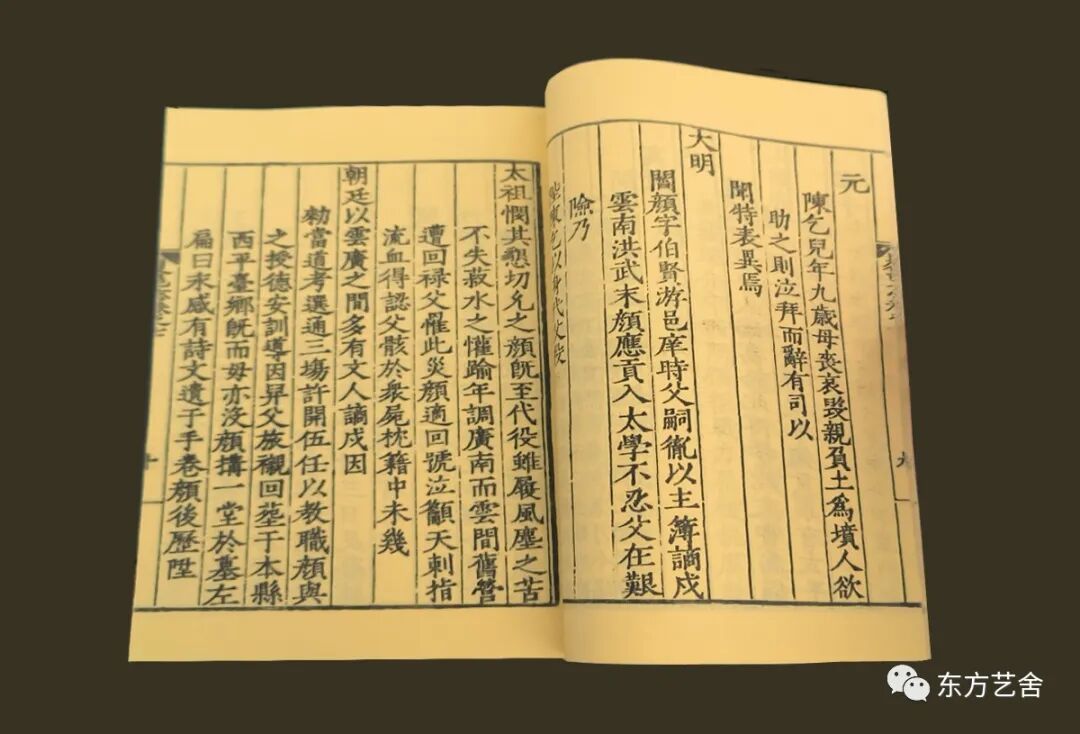 元
陳乞兒年九歲母喪哀毀親負土為墳人欲
助之則泣拜而辭有司以
聞特表異焉
大明
閻顏字伯賢游邑庠時父嗣胤以主簿謫戍
雲南洪武末顏應貢入太學不忍父在艱
險乃
以身代父役
太祖憫其懇切允之顏旣至代役雖履風塵之苦
不失菽水之懽踰年調廣南而雲間舊營
遭回禄父罹此災顏適回號泣籲天刺指
流血得認父骸於衆屍枕籍中未幾
朝廷以雲廣之間多有文人謫戍因
勑當道考選通三塲許開伍任以教職顏與
之授德安訓導因舁父旅櫬回塟于本縣
西平臺鄉旣而母亦沒顏搆一堂於墓左
扁曰永感有詩文遺子手卷顏後歷陞
九
十
东方艺舍